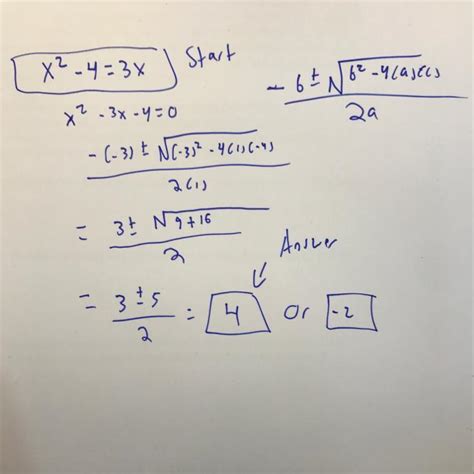 x² - 4 = 3x Start
-b ± √(b² - 4(a)(c)) / 2a
x² - 3x - 4 = 0
-(-3) ± √((-3)² - 4(1)(-4)) / 2(1)
= 3 ± √(9 + 16) / 2
Answer
= 3 ± 5 / 2 = 4 or -2